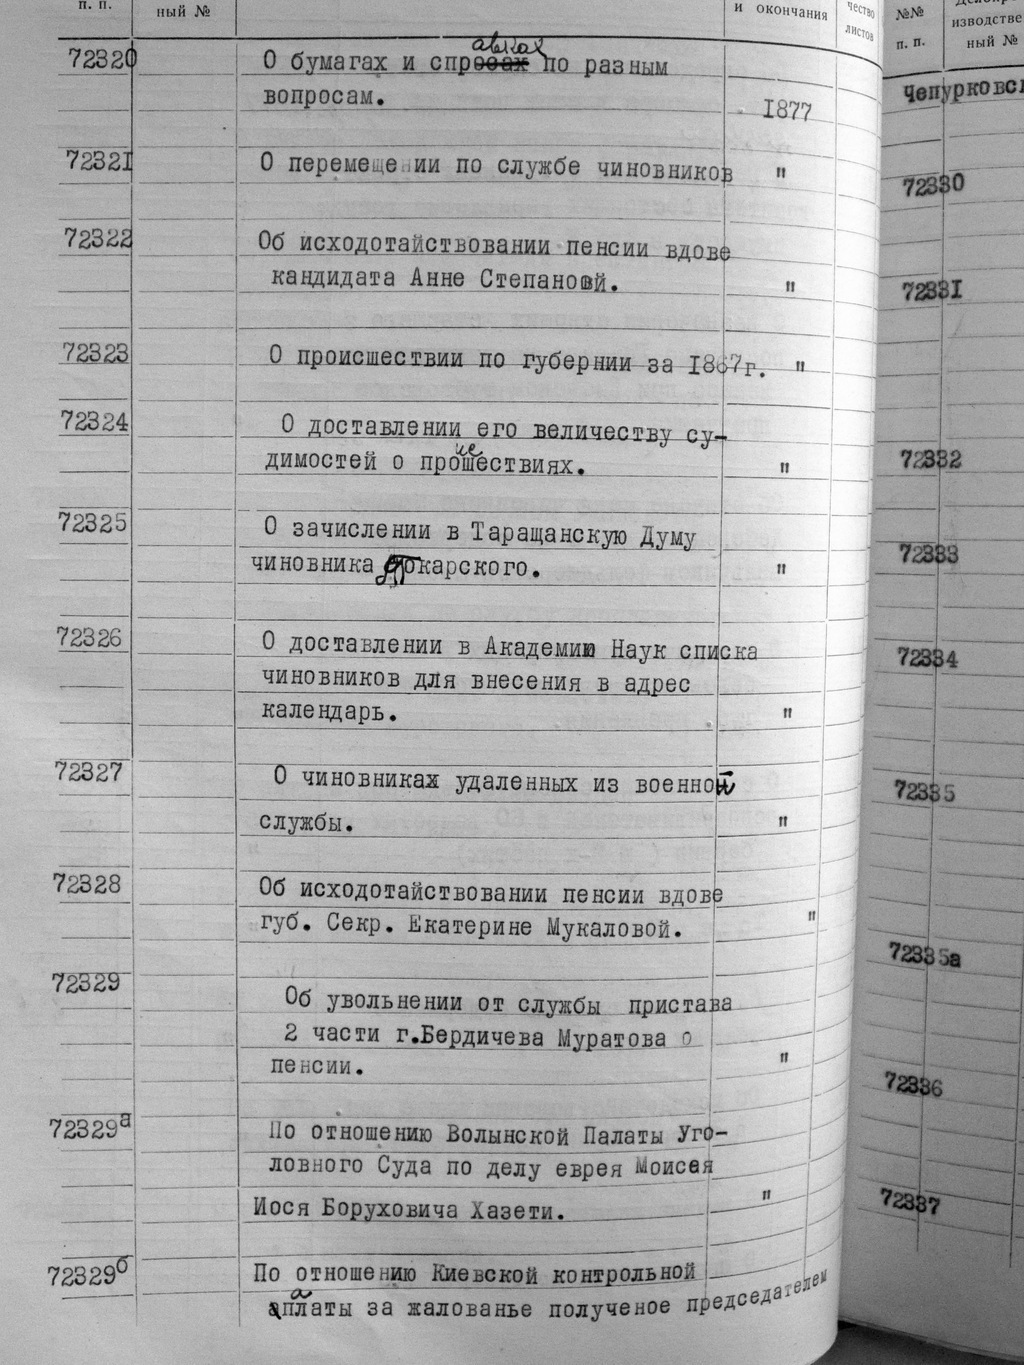 п. п.
ный №
и окончания
чество
листов
72320
О бумагах и справках по разным
вопросам.
1877
72321
О перемещении по службе чиновников "
72322
Об исходотайствовании пенсии вдове
кандидата Анне Степановй. "
72323
О происшествии по губернии за 1867г. "
72324
О доставлении его величеству су-
димостей о проишествиях. "
72325
О зачислении в Таращанскую Думу
чиновника "
72326
О доставлении в Академию Наук списка
чиновников для внесения в адрес
календарь. "
72327
О чиновниках удаленных из военной
службы. "
72328
Об исходотайствовании пенсии вдове
губ. Секр. Екатерине Мукаловой. "
72329
Об увольнении от службы пристава
2 части г.Бердичева Муратова о
пенсии. "
72329а
По отношению Волынской Палаты Уго-
ловного Суда по делу еврея Моисея
Иося Боруховича Хазети. "
72329б
По отношению Киевской контрольной
палаты за жалованье полученое председателем
№№
п. п.
изводстве
ный №
72330
72331
72332
72333
72334
72335
72335а
72336
72337